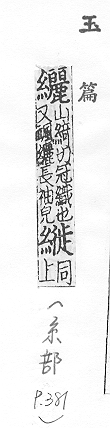 玉篇
纚山綺切冠織也
又颯纚長袖皃縰同
上
(糸部
P.381)